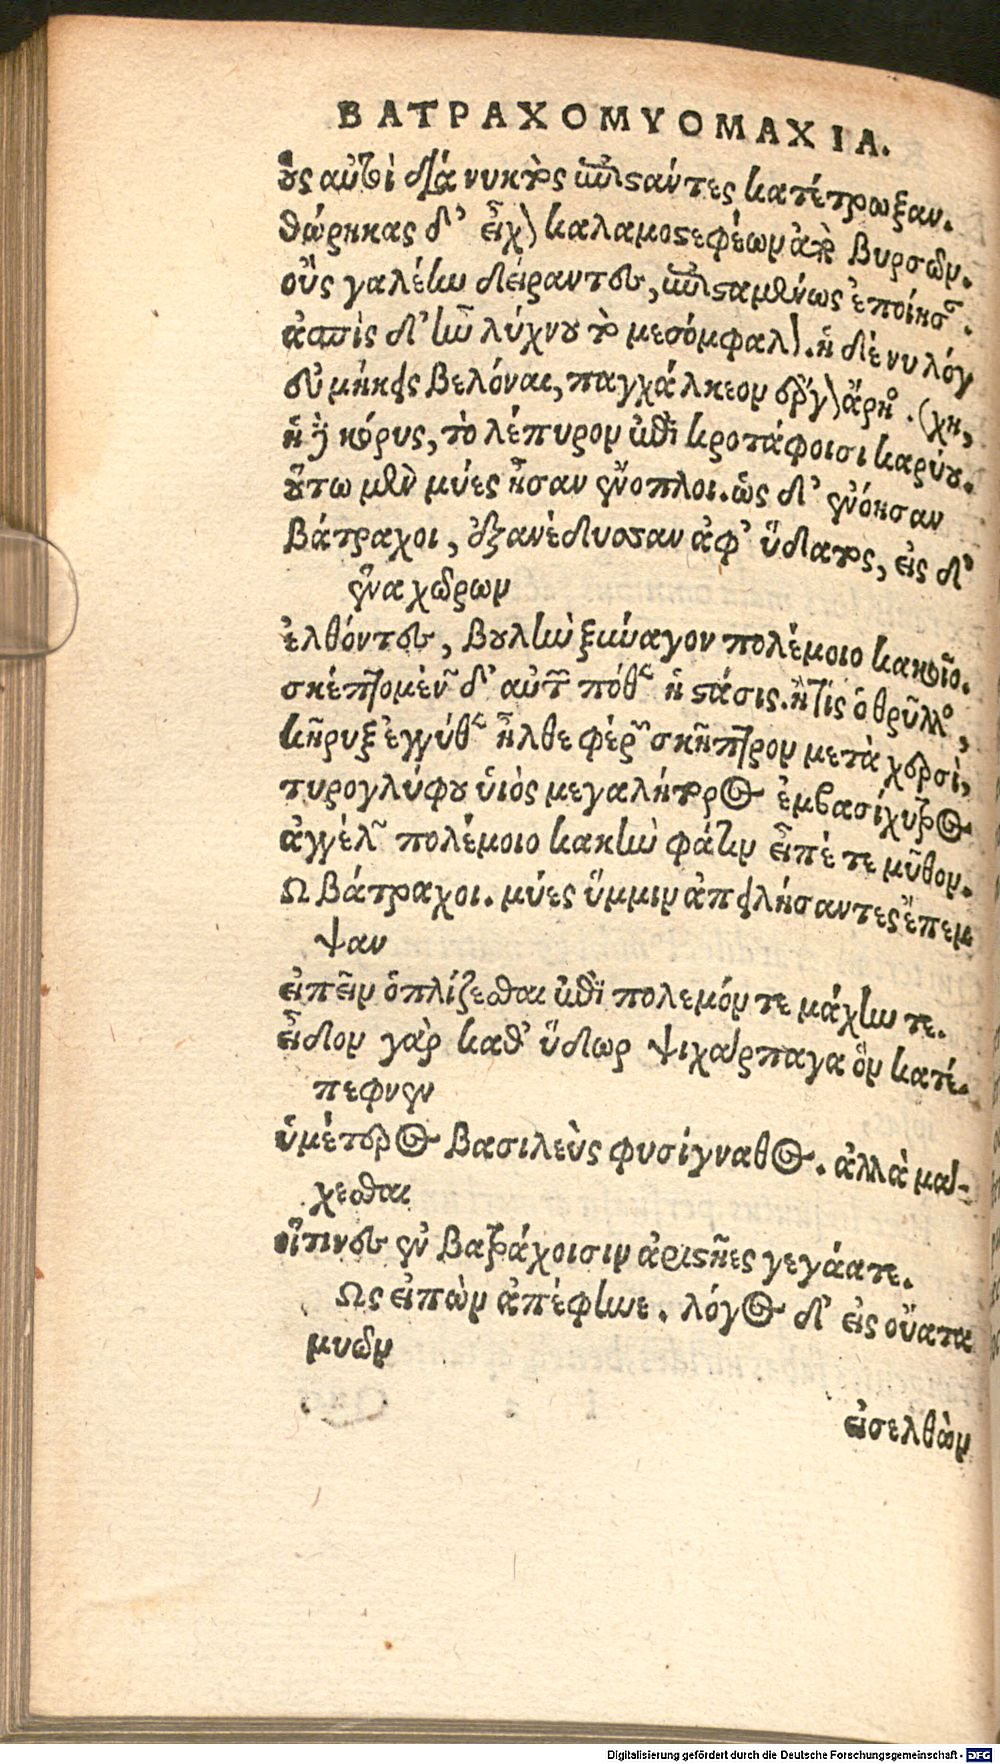 ΒΑΤΡΑΧΟΜΥΟΜΑΧΙΑ.
οὓς αὐτοὶ διὰ νυκτὸς ἐπιστάντες κατέτρωξαν.
θώρηκας δ' εἶχον καλαμοστεφέων ἀπὸ βυρσῶν.
οὓς γαλέην δείραντες, ἐπισταμένως ἐποίησαν.
ἀσπὶς δ' ἦν λύχνου τὸ μεσόμφαλον. ἡ δέ νυ λόγ
εὐμήκεις βελόναι, παγχάλκεον ἔργον ἄρηος. (χη,
ἡ δὲ κόρυς, τὸ λέπυρον ἐπὶ κροτάφοισι καρύου.
οὕτω μὲν μύες ἦσαν ἔνοπλοι. ὡς δ' ἐνόησαν
βάτραχοι, ἐξανέδυσαν ἀφ' ὕδατος, εἰς δ'
ἕνα χῶρων
ἐλθόντες, βουλὴν ξύναγον πολέμοιο κακοῖο.
σκεπτομένων δ' αὐτῶν πόθεν ἡ στάσις. ἢ τίς ὁ θρῦλλος,
κῆρυξ ἐγγύθεν ἦλθε φέρων σκῆπτρον μετὰ χερσὶ,
τυρογλύφου υἱὸς μεγαλήτορος ἐμβασίχυτρος
ἀγγέλων πολέμοιο κακὴν φάτιν εἶπέ τε μῦθον.
Ω βάτραχοι. μύες ὕμμιν ἀπειλήσαντες ἔπεμ
ψαν
εἰπεῖν ὁπλίζεσθαι ἐπὶ πολεμόν τε μάχην τε.
εἶδον γὰρ καθ' ὕδωρ ψιχάρπαγα ὃν κατέ-
πεφνεν
ὑμέτερος βασιλεὺς φυσίγναθος. ἀλλὰ μά-
χεσθαι
οἵτινες ἐν βατράχοισιν ἀριστῆες γεγάατε.
Ως εἰπὼν ἀπέφηνε. λόγος δ' εἰς οὔατα
μυῶν
εἰσελθὼν
Digitalisierung gefördert durch die Deutsche Forschungsgemeinschaft - DFG